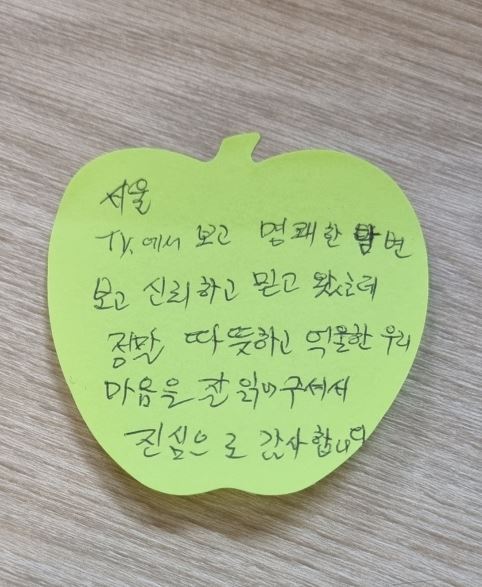 서울
TV.에서 보고 명쾌한 답변
보고 신뢰하고 믿고 왔는데
정말 따뜻하고 억울한 우리
마음을 잘 읽어주셔서
진심으로 감사합니다